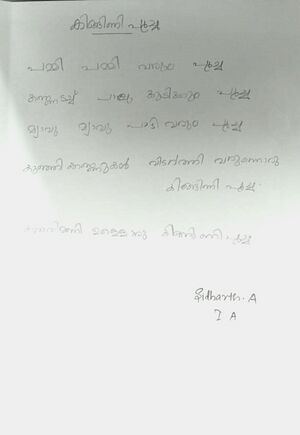 കിങ്ങിണി പൂച്ച
പമ്മി പമ്മി വരും പൂച്ച
കണ്ണടച്ച് പാലു കുടിക്കും പൂച്ച
മ്യാവു മ്യാവു പാടി വരും പൂച്ച
വരുന്നൊരു
കിങ്ങിണി പൂച്ച
കിങ്ങിണി പൂച്ച
Sidharth. A
I A